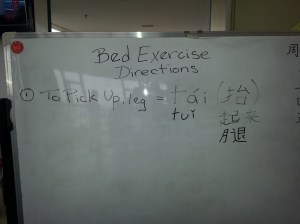 Bed Exercise
Directions
① To Pick Up leg = tái (抬
tuǐ 起来
腿
周